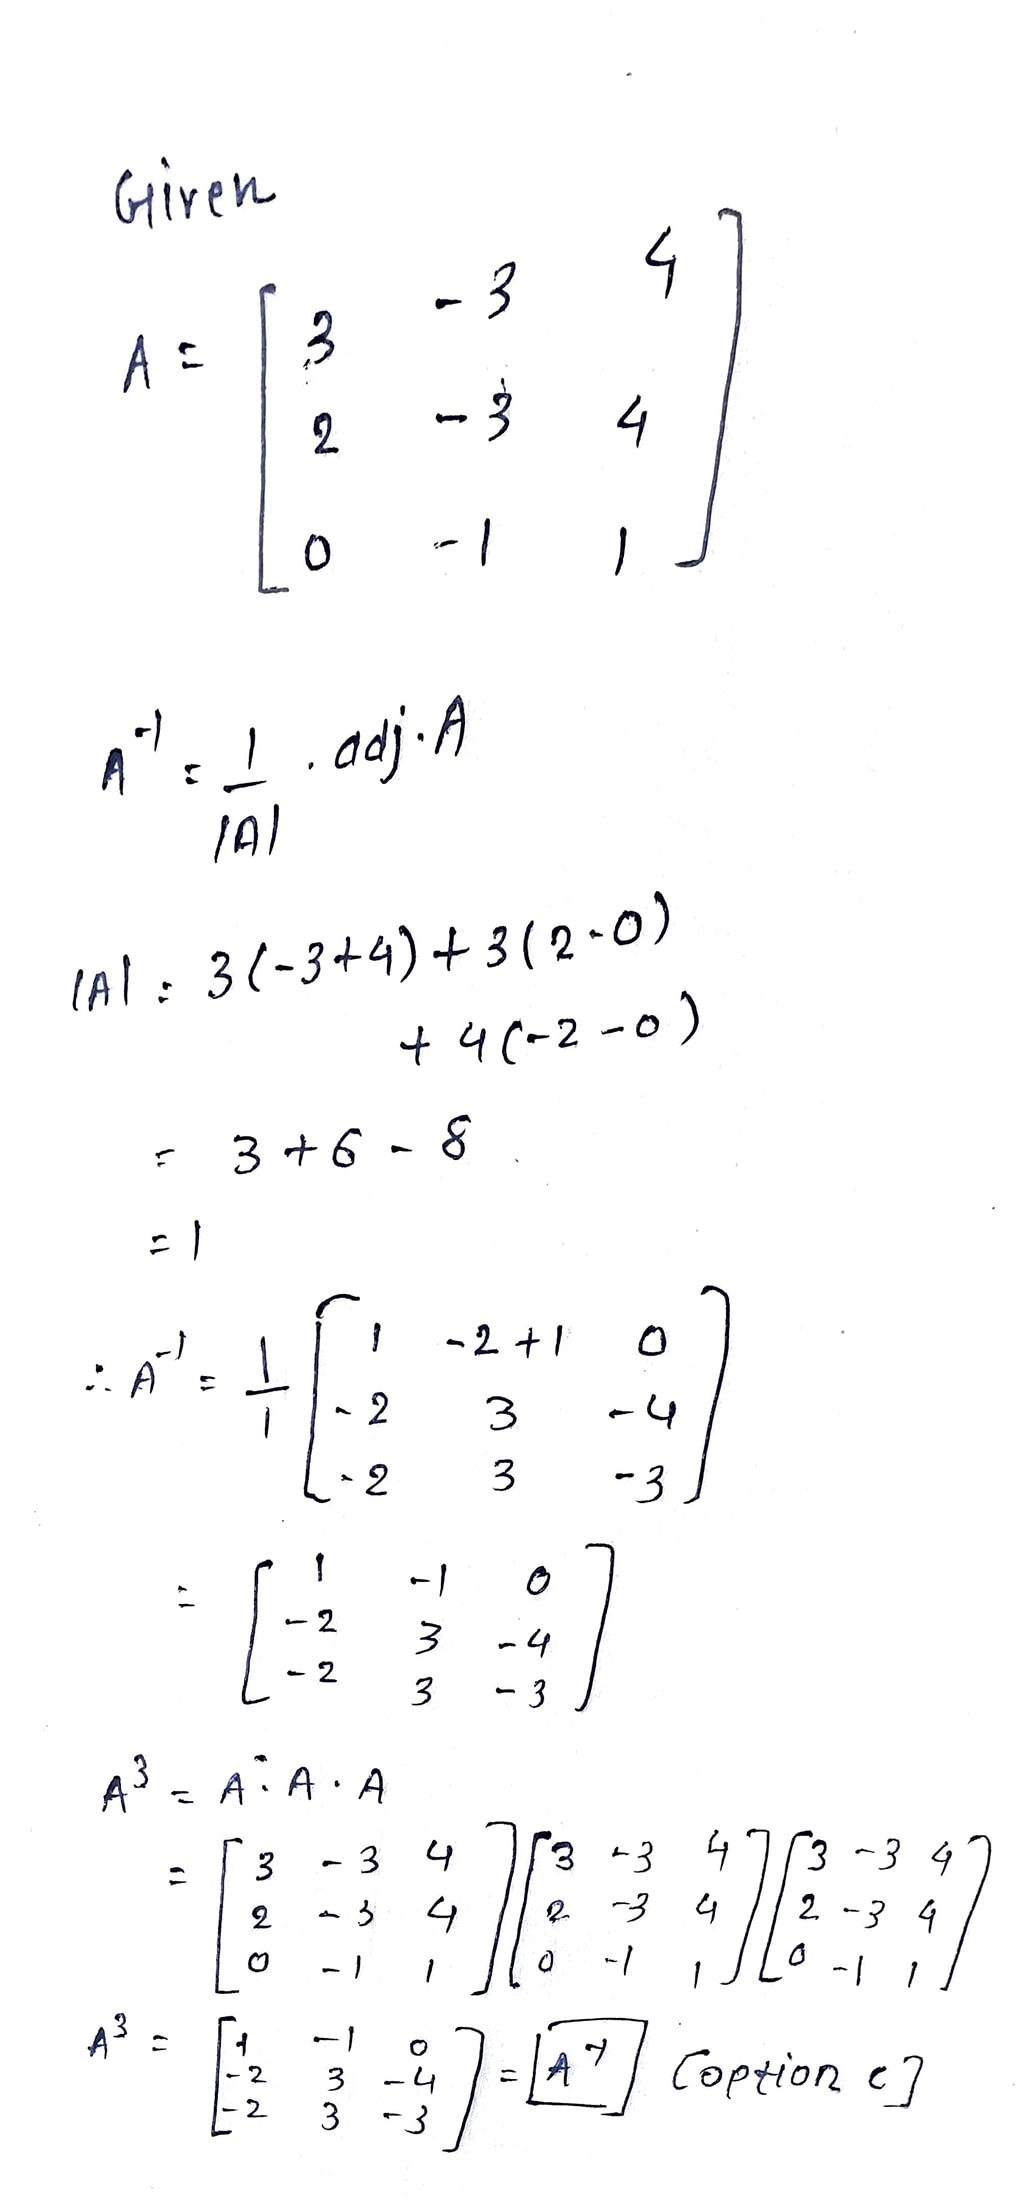 Given
A = [ 3 -3 4
2 -3 4
0 -1 1 ]
A⁻¹ = 1/|A| . adj.A
|A| = 3(-3+4) + 3(2-0)
+ 4(-2-0)
= 3+6-8
=1
∴ A⁻¹ = 1/1 [ 1 -2+1 0
-2 3 -4
-2 3 -3 ]
= [ 1 -1 0
-2 3 -4
-2 3 -3 ]
A³ = A.A.A
= [ 3 -3 4 ] [ 3 -3 4 ] [ 3 -3 4 ]
2 -3 4 2 -3 4 2 -3 4
0 -1 1 0 -1 1 0 -1 1
A³ = [ 1 -1 0
-2 3 -4
-2 3 -3 ] = A⁻¹ [option c]